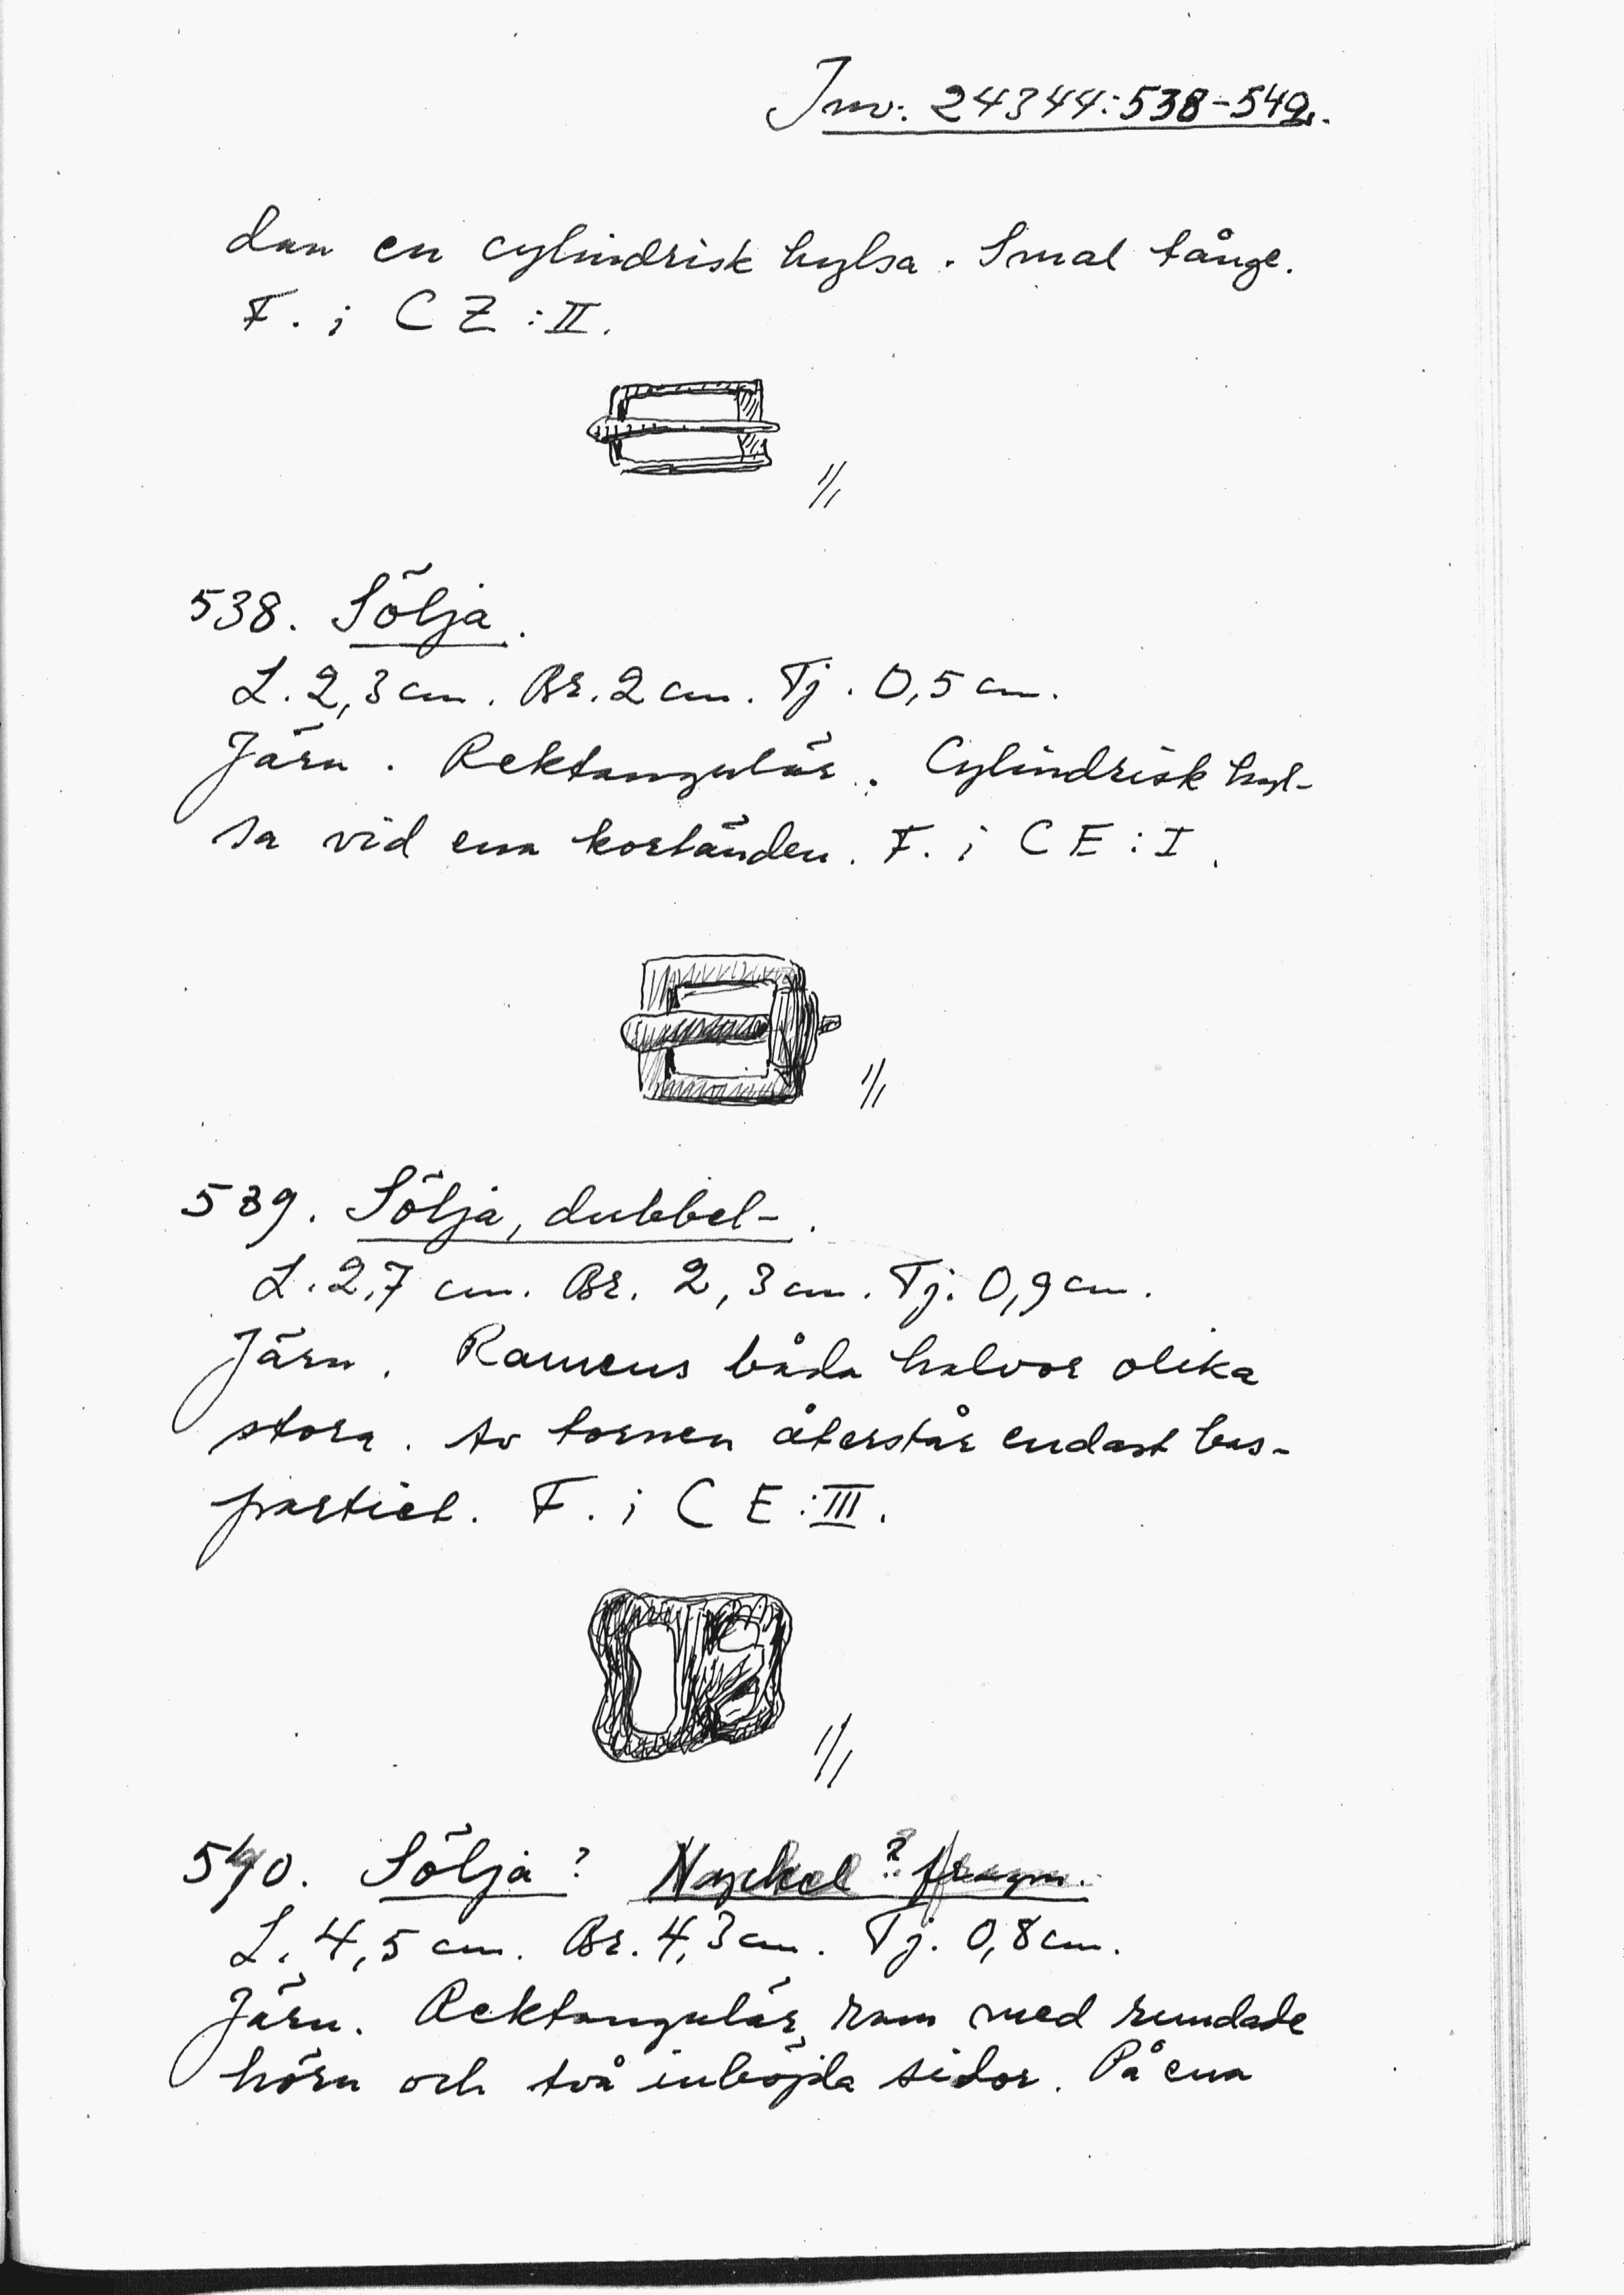 Inv: 24344:538-540.
dan en cylindrisk hylsa. Smal tånge.
F. i CZ:II.
1/1
538. Sölja.
L. 2,3 cm. Br. 2 cm. Tj. 0,5 cm.
Järn. Rektangulär. Cylindrisk hyl-
sa vid ena kortänden. F. i CE:I.
1/1
539. Sölja, dubbel-.
L. 2,7 cm. Br. 2,3 cm. Tj. 0,9 cm.
Järn. Ramens båda halvor olika
stora. Av tornen återstår endast bas-
partiet. F. i CE:III.
1/1
540. Sölja? Nyckel? fragm.
L. 4,5 cm. Br. 4,3 cm. Tj. 0,8 cm.
Järn. Rektangulär ram med rundade
hörn och två inböjda sidor. På ena